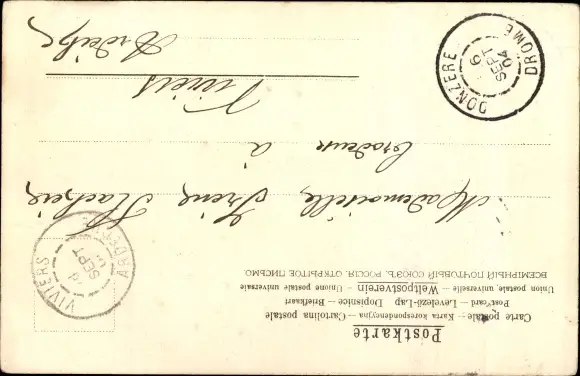 Postkarte
Carte postale — Karta korespondencyjna — Cartolina postale
Postcard — Levelező-Lap — Dopisnice — Briefkaart
Union postale universelle — Weltpostverein — Unione postale universale
ВСЕМІРНЫЙ ПОЧТОВЫЙ СОЮЗЪ. РОССІЯ. ОТКРЫТОЕ ПИСЬМО.
Mademoiselle
à
Viviers
Ardèche
VIVIERS ARDÈCHE
SEPT
DONZERE DROME
6
SEPT
04